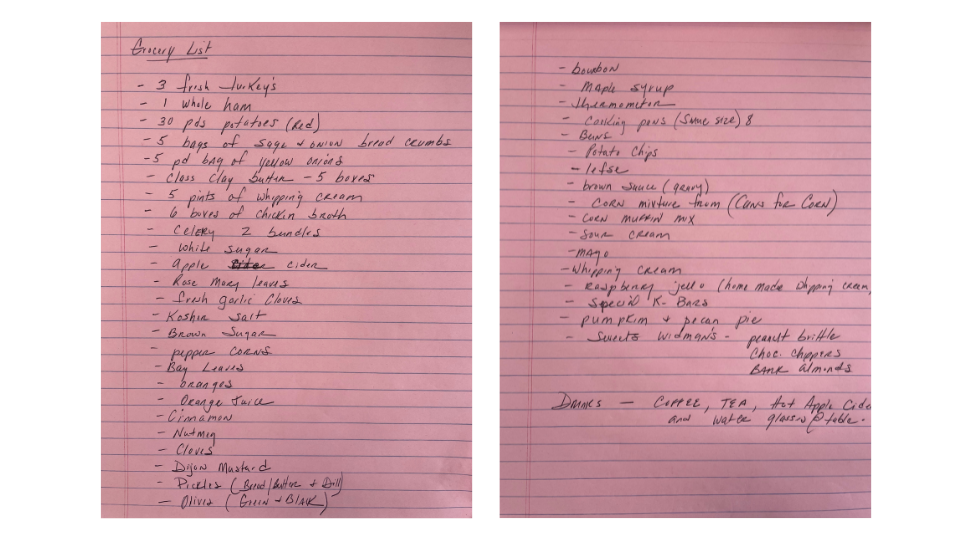 Grocery List
- 3 fresh turkey's
- 1 whole ham
- 30 pds potatoes (Red)
- 5 bags of sage + onion bread crumbs
- 5 pd bag of yellow onions
- Class Clay butter - 5 boxes
- 5 pints of whipping cream
- 6 boxes of chickin broth
- Celery 2 bundles
- White sugar
- apple cider
- Rose Mary leaves
- fresh garlic cloves
- Koshir salt
- Brown Sugar
- pepper corns
- Bay Leaves
- oranges
- Orange Juice
- Cinnamon
- Nutmeg
- Cloves
- Dijon Mustard
- Pickles (Bread/butter + Dill)
- Olives (Green + Black)
- bourbon
- Maple syrup
- thermometer
- Cooking pans (Same size) 8
- Buns
- Potato Chips
- lefse
- brown sauce (gravy)
- Corn mixture from (Cans for Corn)
- Corn muffin mix
- Sour cream
- mayo
- Whipping cream
- Raspberry jello (home made whipping cream,
- Special K-Bars
- pumpkin + pecan pie
- Sweets Widman's - peanut brittle
Choc. chippers
Bank almonds
Drinks - Coffee, Tea, Hot Apple Cide
and water glasses @ table.